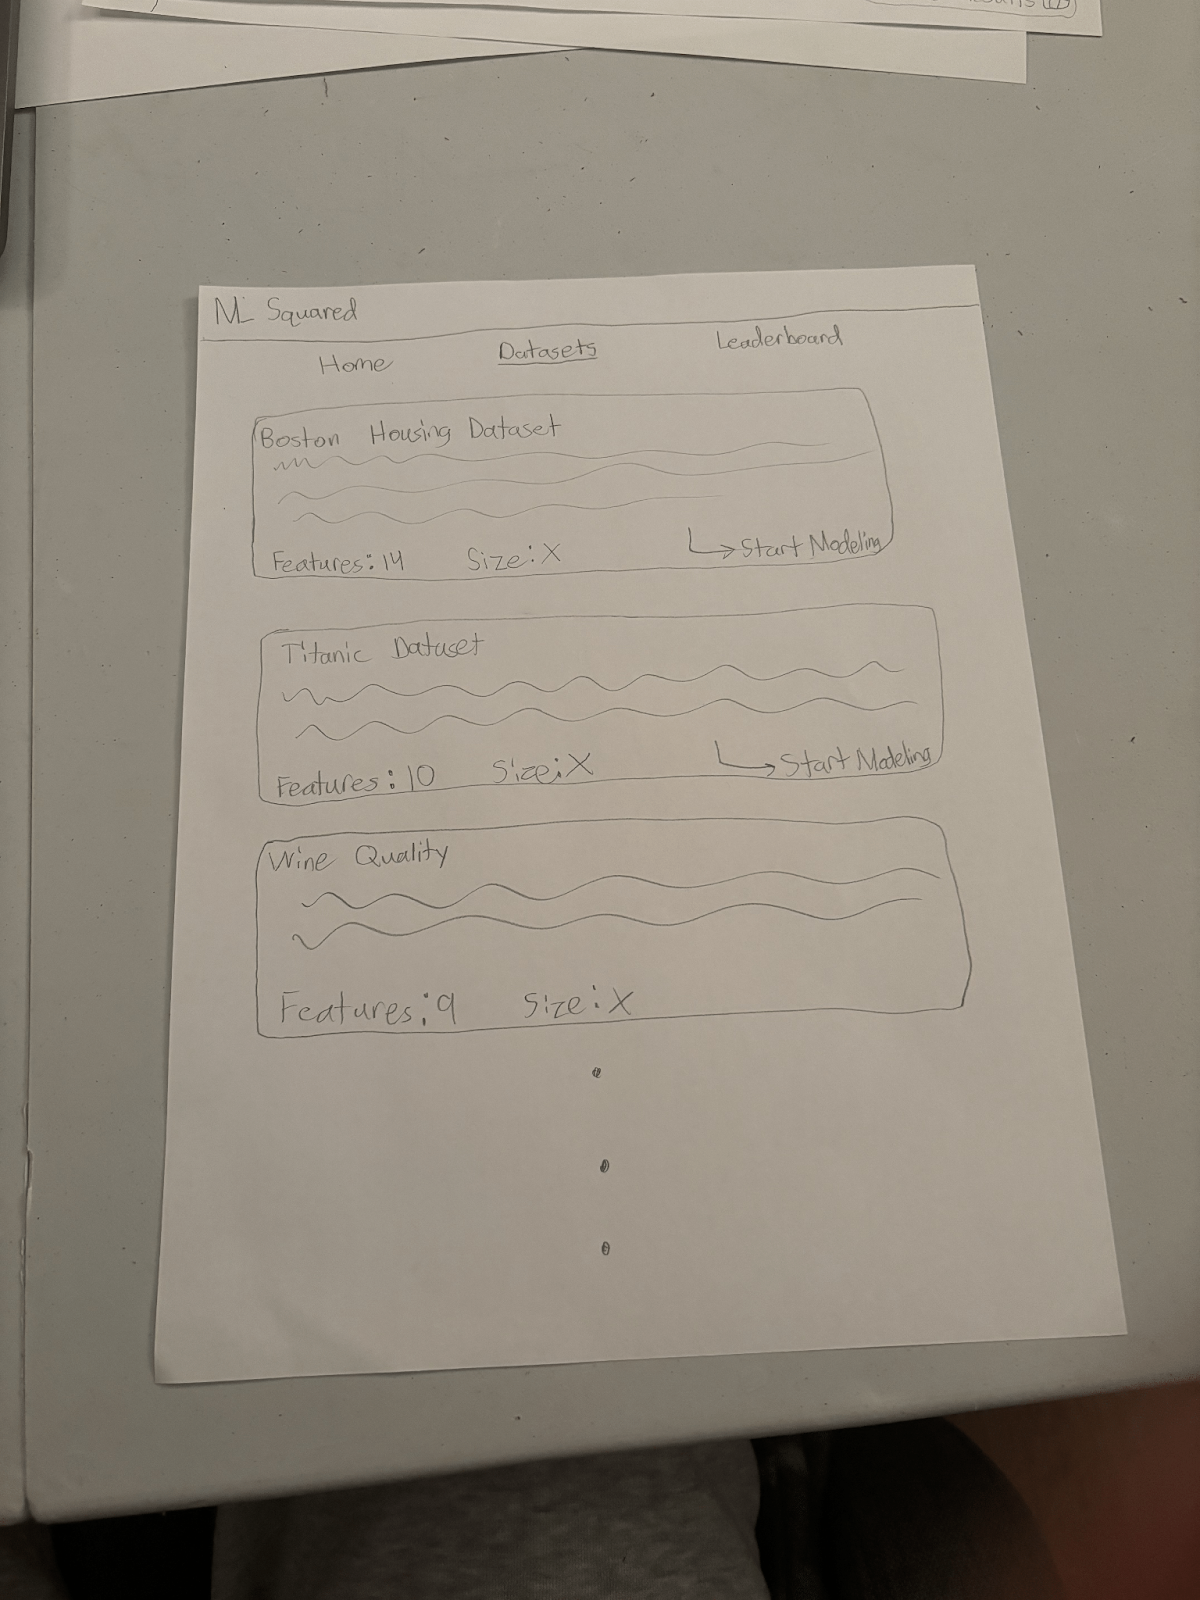 ML Squared
Home Datasets Leaderboard
Boston Housing Dataset
Features: 14 Size: X Start Modeling
Titanic Dataset
Features: 10 Size: X Start Modeling
Wine Quality
Features: 9 Size: X